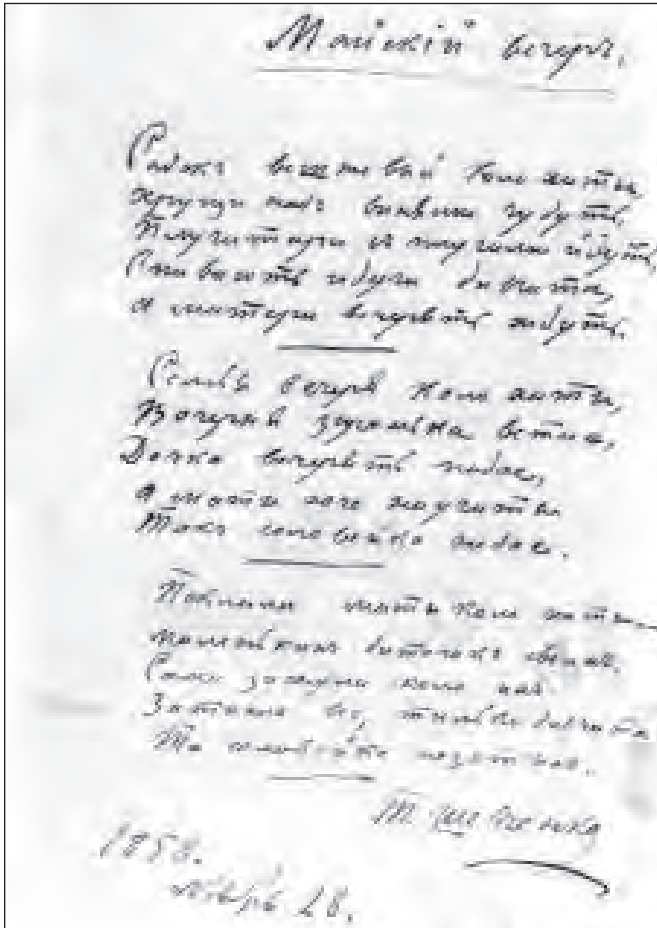 Майскій вечеръ.
Садокъ вишневий коло хати,
Хрущи надъ вишнями гудуть,
Плугатари зъ плугами йдуть,
Спивають идучи дивчата,
А матери вечерять ждуть.
Семья вечеря коло хати,
Вечирня зиронька встае,
Дочка вечерять подае,
А мати хоче научати
Такъ соловейко недае.
Поклала мати коло хати
маленькихъ диточокъ своихъ.
Сама заснула коло ихъ.
Затихло все, тилько дивчата
Та соловейко незатихъ.
Т. Шевченко
1858.
28.